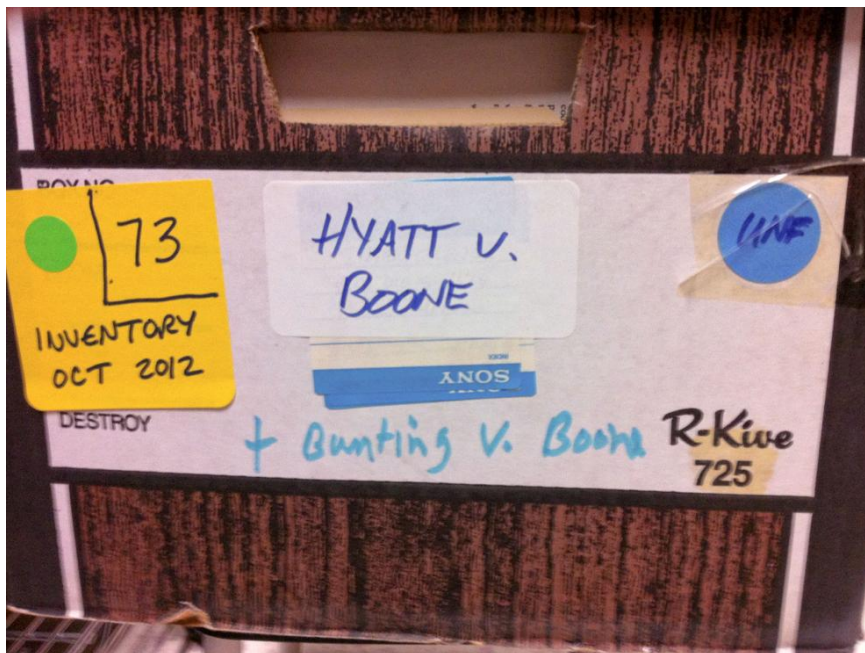 BOX NO.
73
INVENTORY
OCT 2012
HYATT V.
BOONE
UNF
INDEX
SONY
DESTROY
+ Bunting V. Boone
R-Kive
725